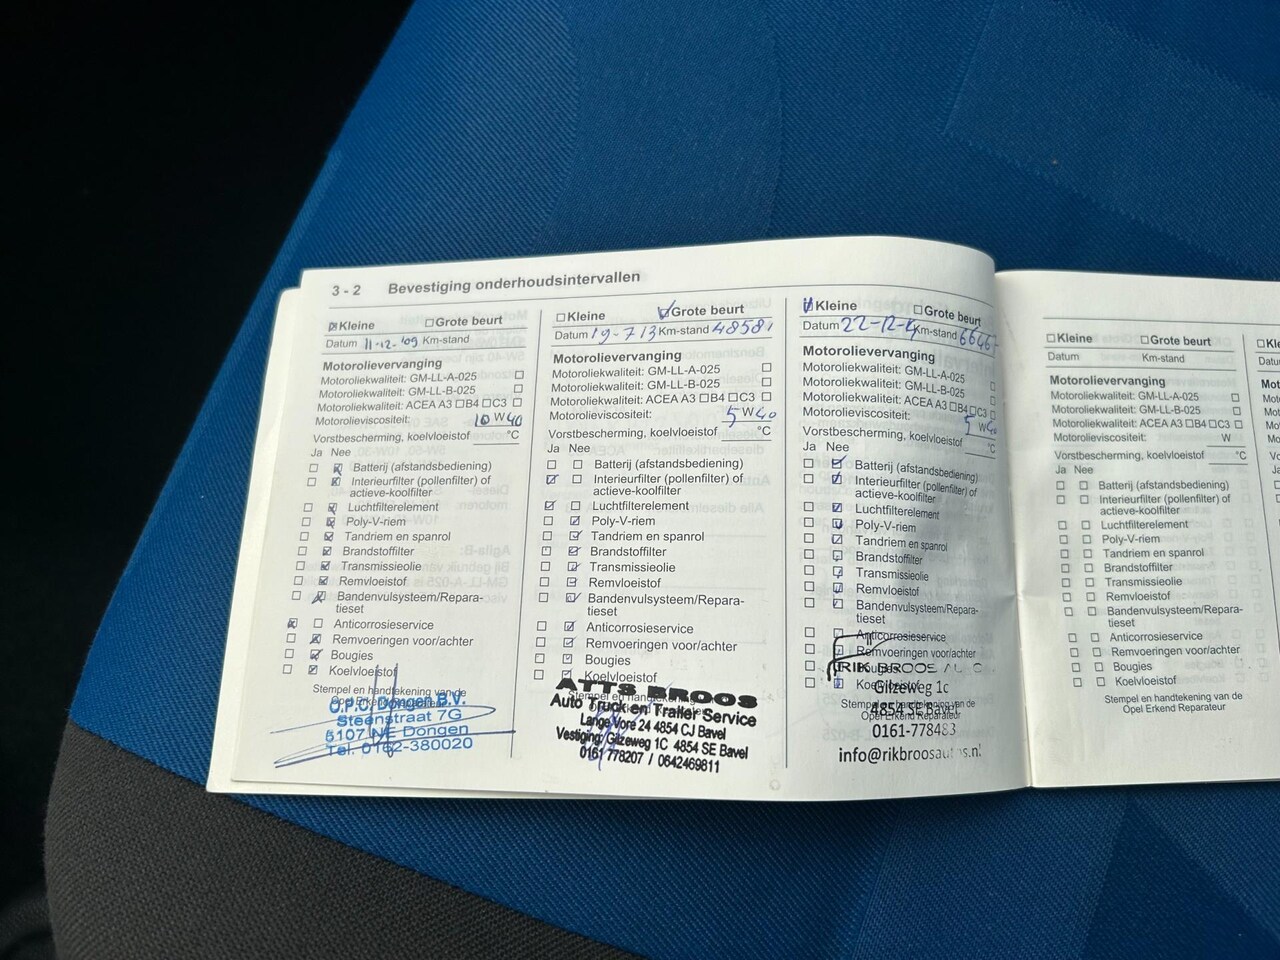 3 - 2 Bevestiging onderhoudsintervallen
Kleine Grote beurt
Datum 11-12-'09 Km-stand
Motorolievervanging
Motoroliekwaliteit: GM-LL-A-025
Motoroliekwaliteit: GM-LL-B-025
Motoroliekwaliteit: ACEA A3 B4 C3
Motorolieviscositeit: 10 W 40
Vorstbescherming, koelvloeistof °C
Ja Nee
Batterij (afstandsbediening)
Interieurfilter (pollenfilter) of
actieve-koolfilter
Luchtfilterelement
Poly-V-riem
Tandriem en spanrol
Brandstoffilter
Transmissieolie
Remvloeistof
Bandenvulsysteem/Repara-
tieset
Anticorrosieservice
Remvoeringen voor/achter
Bougies
Koelvloeistof
Stempel en handtekening van de
O.P.C. Dongen B.V.
Steenstraat 7G
5107 NE Dongen
Tel. 0162-380020
Kleine Grote beurt
Datum 19-713 Km-stand 48581
Motorolievervanging
Motoroliekwaliteit: GM-LL-A-025
Motoroliekwaliteit: GM-LL-B-025
Motoroliekwaliteit: ACEA A3 B4 C3
Motorolieviscositeit: 5 W 40
Vorstbescherming, koelvloeistof °C
Ja Nee
Batterij (afstandsbediening)
Interieurfilter (pollenfilter) of
actieve-koolfilter
Luchtfilterelement
Poly-V-riem
Tandriem en spanrol
Brandstoffilter
Transmissieolie
Remvloeistof
Bandenvulsysteem/Repara-
tieset
Anticorrosieservice
Remvoeringen voor/achter
Bougies
Koelvloeistof
ATTS BROOS
Auto Truck en Trailer Service
Lange Vore 24 4854 CJ Bavel
Vestiging: Gilzeweg 1C 4854 SE Bavel
0161 778207 / 0642469811
Kleine Grote beurt
Datum Km-stand
Motorolievervanging
Motoroliekwaliteit: GM-LL-A-025
Motoroliekwaliteit: GM-LL-B-025
Motoroliekwaliteit: ACEA A3 B4 C3
Motorolieviscositeit: 5 W40
Vorstbescherming, koelvloeistof °C
Ja Nee
Batterij (afstandsbediening)
Interieurfilter (pollenfilter) of
actieve-koolfilter
Luchtfilterelement
Poly-V-riem
Tandriem en spanrol
Brandstoffilter
Transmissieolie
Remvloeistof
Bandenvulsysteem/Repara-
tieset
Anticorrosieservice
Remvoeringen voor/achter
Bougies
Koelvloeistof
Stempel en handtekening van de
Opel Erkend Reparateur
RIK BROOS
Gilzeweg 1c
4854 SE Bavel
0161-778483
info@rikbroosautos.nl
Kleine Grote beurt
Datum Km-stand
Motorolievervanging
Motoroliekwaliteit: GM-LL-A-025
Motoroliekwaliteit: GM-LL-B-025
Motoroliekwaliteit: ACEA A3 B4 C3
Motorolieviscositeit: W
Vorstbescherming, koelvloeistof °C
Ja Nee
Batterij (afstandsbediening)
Interieurfilter (pollenfilter) of
actieve-koolfilter
Luchtfilterelement
Poly-V-riem
Tandriem en spanrol
Brandstoffilter
Transmissieolie
Remvloeistof
Bandenvulsysteem/Repara-
tieset
Anticorrosieservice
Remvoeringen voor/achter
Bougies
Koelvloeistof
Stempel en handtekening van de
Opel Erkend Reparateur